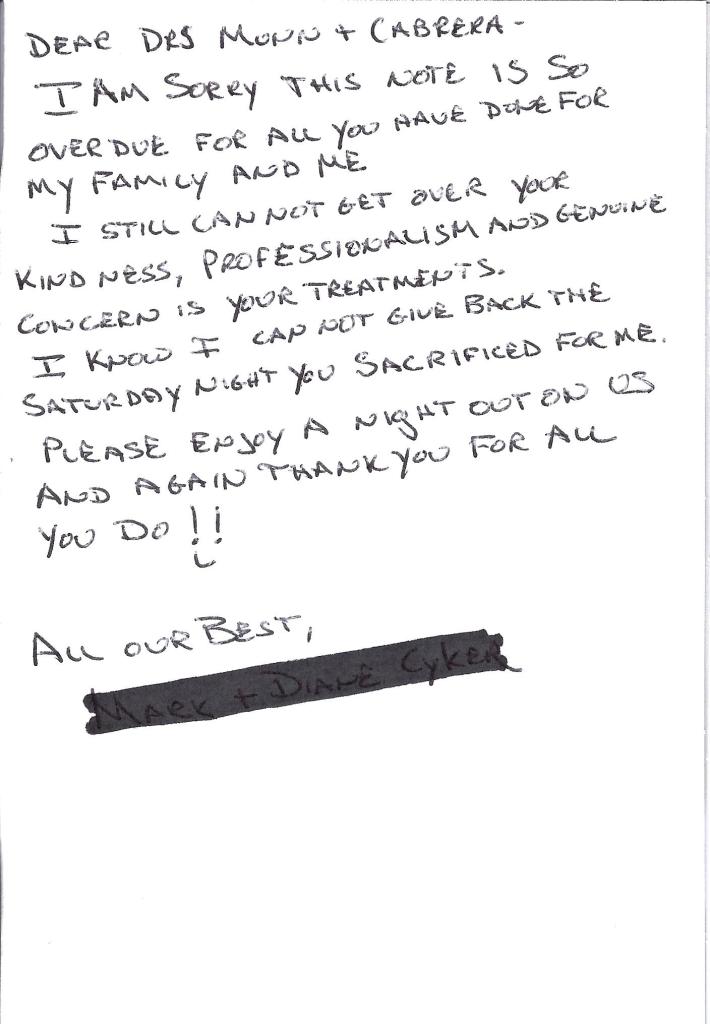 DEAR DRS MUNN + CABRERA -
I AM SORRY THIS NOTE IS SO
OVERDUE FOR ALL YOU HAVE DONE FOR
MY FAMILY AND ME
I STILL CAN NOT GET OVER YOUR
KINDNESS, PROFESSIONALISM AND GENUINE
CONCERN IS YOUR TREATMENTS.
I KNOW I CAN NOT GIVE BACK THE
SATURDAY NIGHT YOU SACRIFICED FOR ME.
PLEASE ENJOY A NIGHT OUT ON US
AND AGAIN THANK YOU FOR ALL
YOU DO !!
ALL OUR BEST,